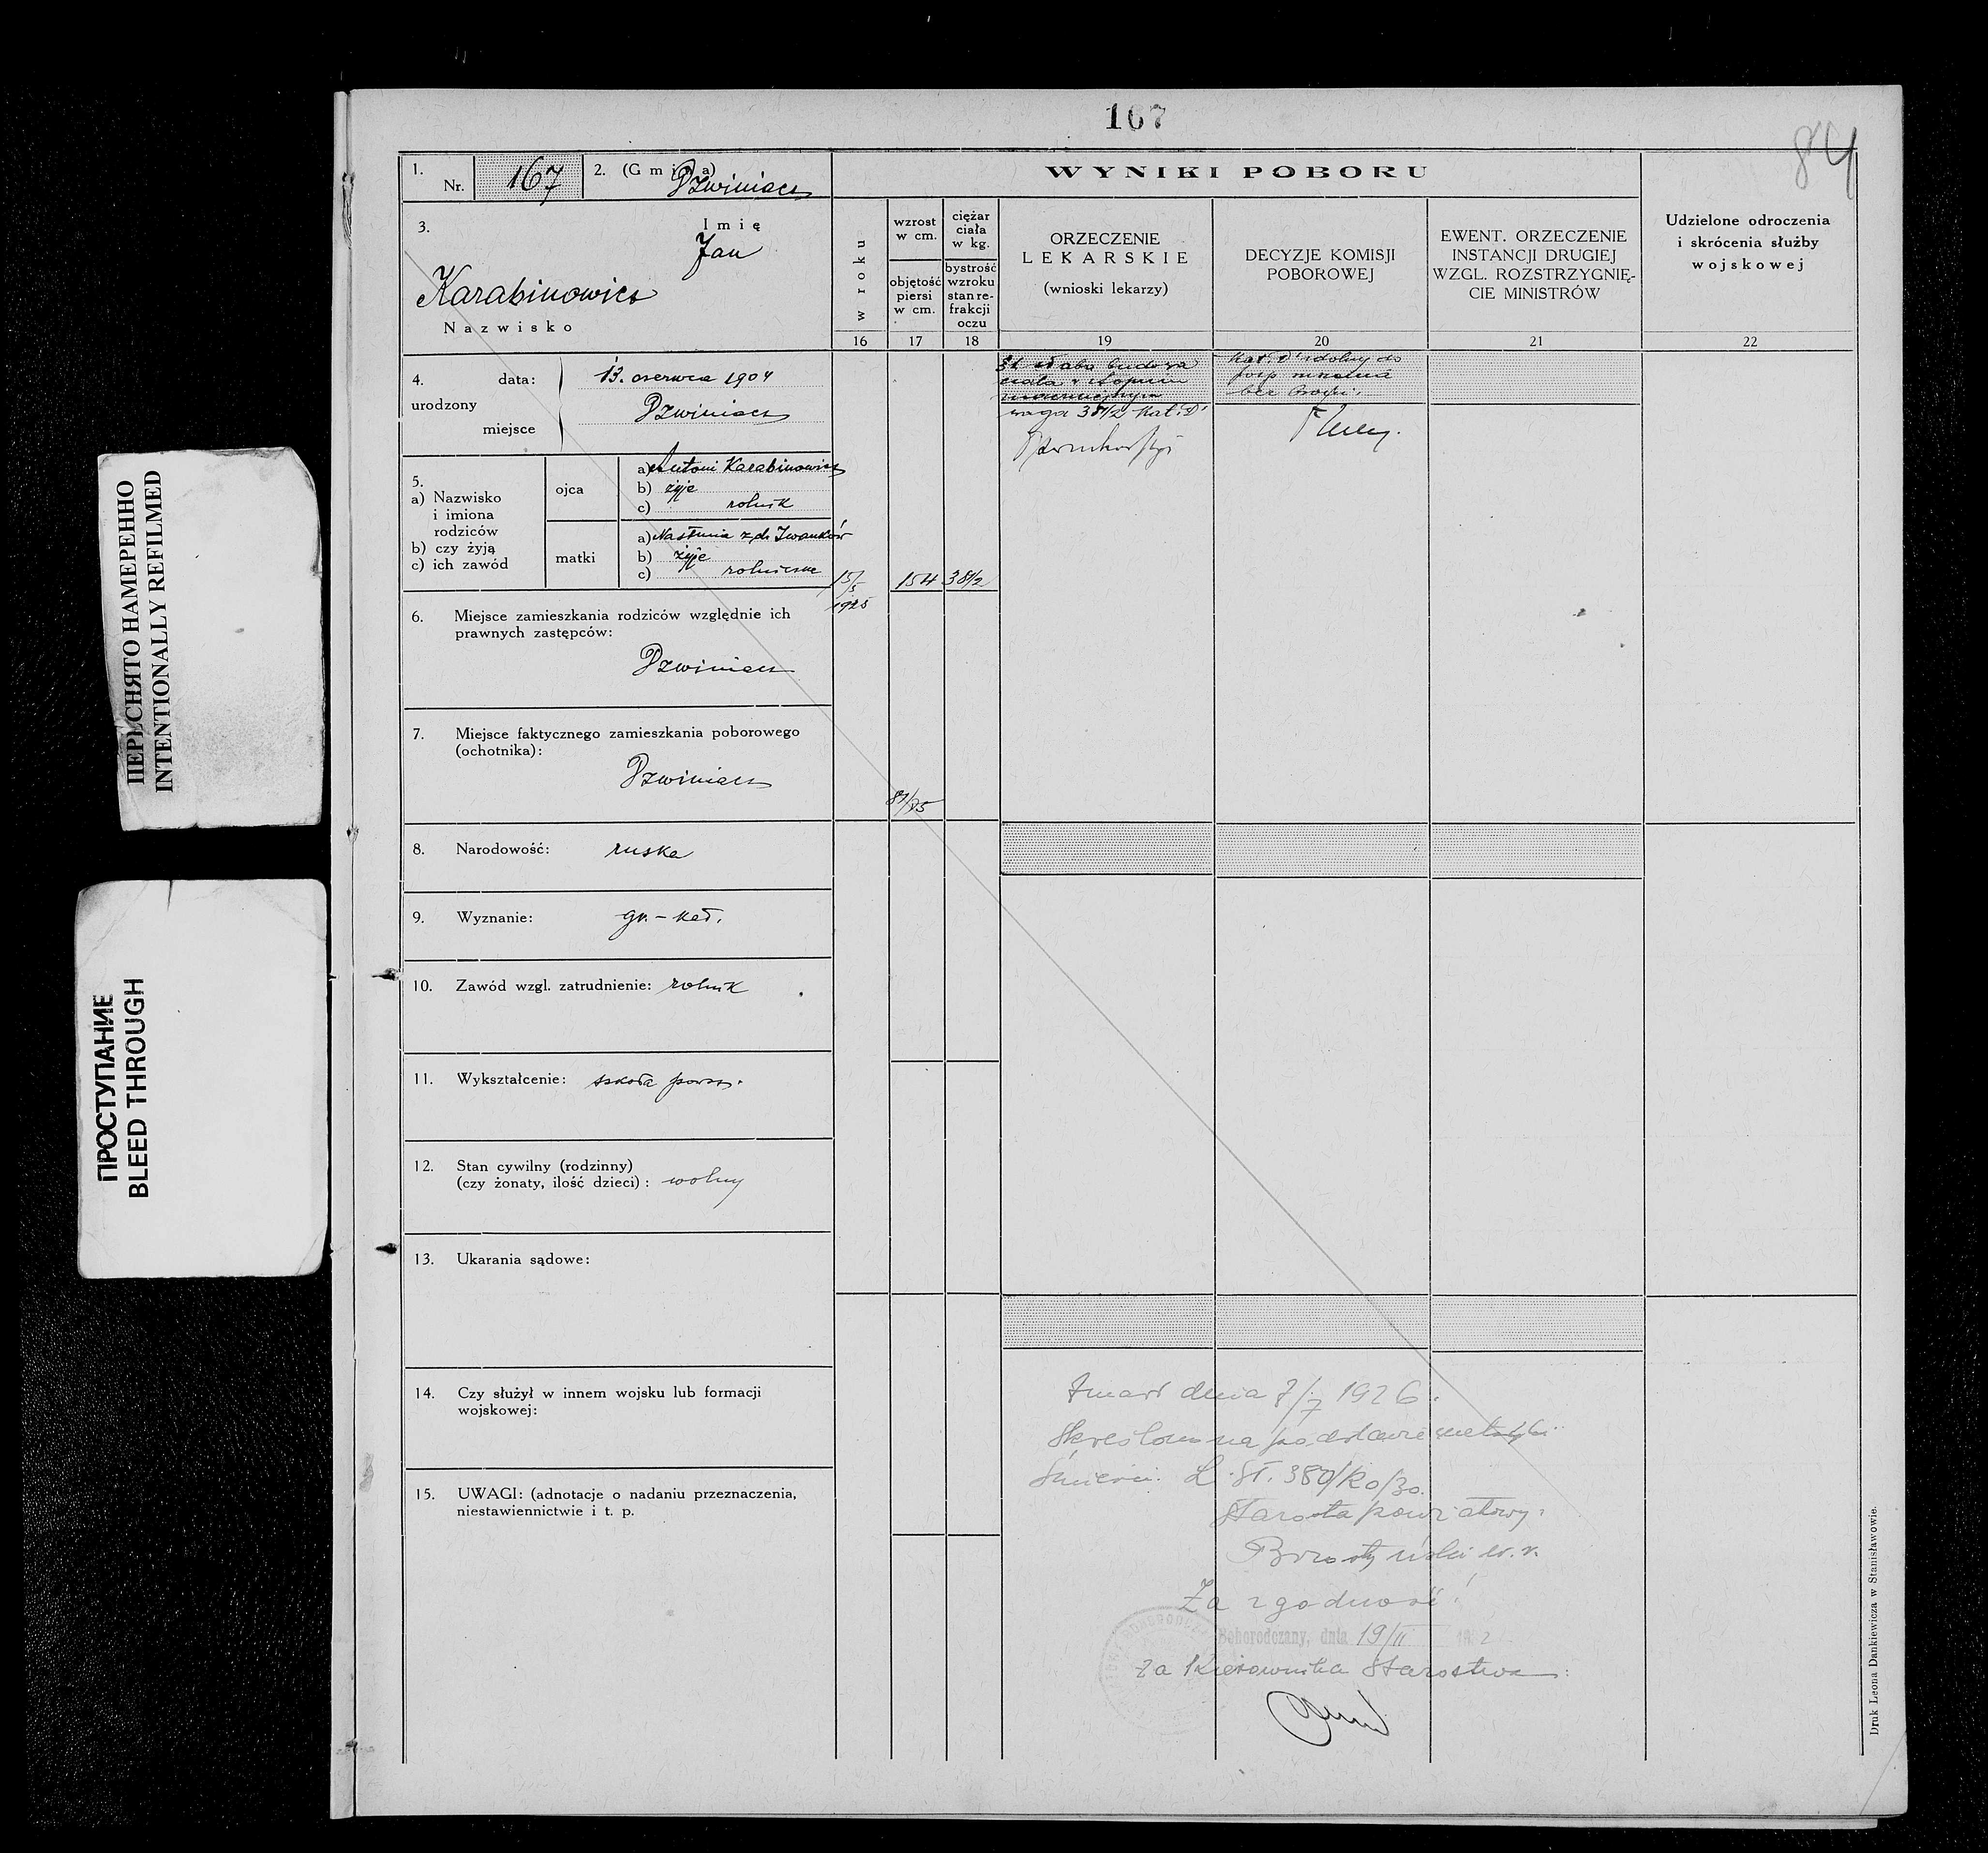 167
84
1. Nr. 167
2. (Gmina) Dzwiniacz
WYNIKI POBORU
3. Imię
Jan
Karabinowicz
Nazwisko
w roku
wzrost w cm.
objętość piersi w cm.
ciężar ciała w kg.
bystrość wzroku stan re-frakcji oczu
ORZECZENIE
LEKARSKIE
(wnioski lekarzy)
DECYZJE KOMISJI
POBOROWEJ
EWENT. ORZECZENIE
INSTANCJI DRUGIEJ
WZGL. ROZSTRZYGNIĘ-
CIE MINISTRÓW
Udzielone odroczenia
i skrócenia służby
wojskowej
16 17 18 19 20 21 22
4. urodzony
data: 13. czerwca 1904
miejsce Dzwiniacz
słaba budowa
ciała
waga 38 1/2 Kat. D
Kat. D zdolny do
bez broni.
5.
a) Nazwisko
i imiona
rodziców
b) czy żyją
c) ich zawód
ojca
a) Antoni Karabinowicz
b) żyje
c) rolnik
matki
a) Nastunia z d. Iwanków
b) żyje
c) rolniczka
15/5 1925
154
38 1/2
6. Miejsce zamieszkania rodziców względnie ich
prawnych zastępców:
Dzwiniacz
7. Miejsce faktycznego zamieszkania poborowego
(ochotnika):
Dzwiniacz
8. Narodowość: ruska
9. Wyznanie: gr.-kat.
10. Zawód wzgl. zatrudnienie: rolnik
11. Wykształcenie: szkoła powsz.
12. Stan cywilny (rodzinny)
(czy żonaty, ilość dzieci): wolny
13. Ukarania sądowe:
14. Czy służył w innem wojsku lub formacji
wojskowej:
15. UWAGI: (adnotacje o nadaniu przeznaczenia,
niestawiennictwie i t. p.
Zmarł dnia 7/7 1926.
Skreślono na podstawie metryki
śmierci. L. St. 380/Ro/30.
Starosta powiatowy:
w. r.
Za zgodność!
Bohorodczany, dnia 19/II
Za Kierownika Starostwa:
Druk Leona Dankiewicza w Stanisławowie.
ПЕРЕСНЯТО НАМЕРЕННО
INTENTIONALLY REFILMED
ПРОСТУПАНИЕ
BLEED THROUGH